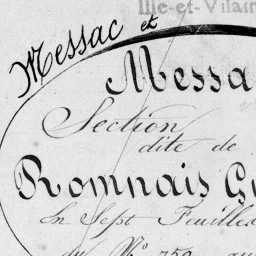 Ille-et-Vilain
Messac et
Messa
Section
dite de
Romnais G
En Sept Feuilles
du N° 759